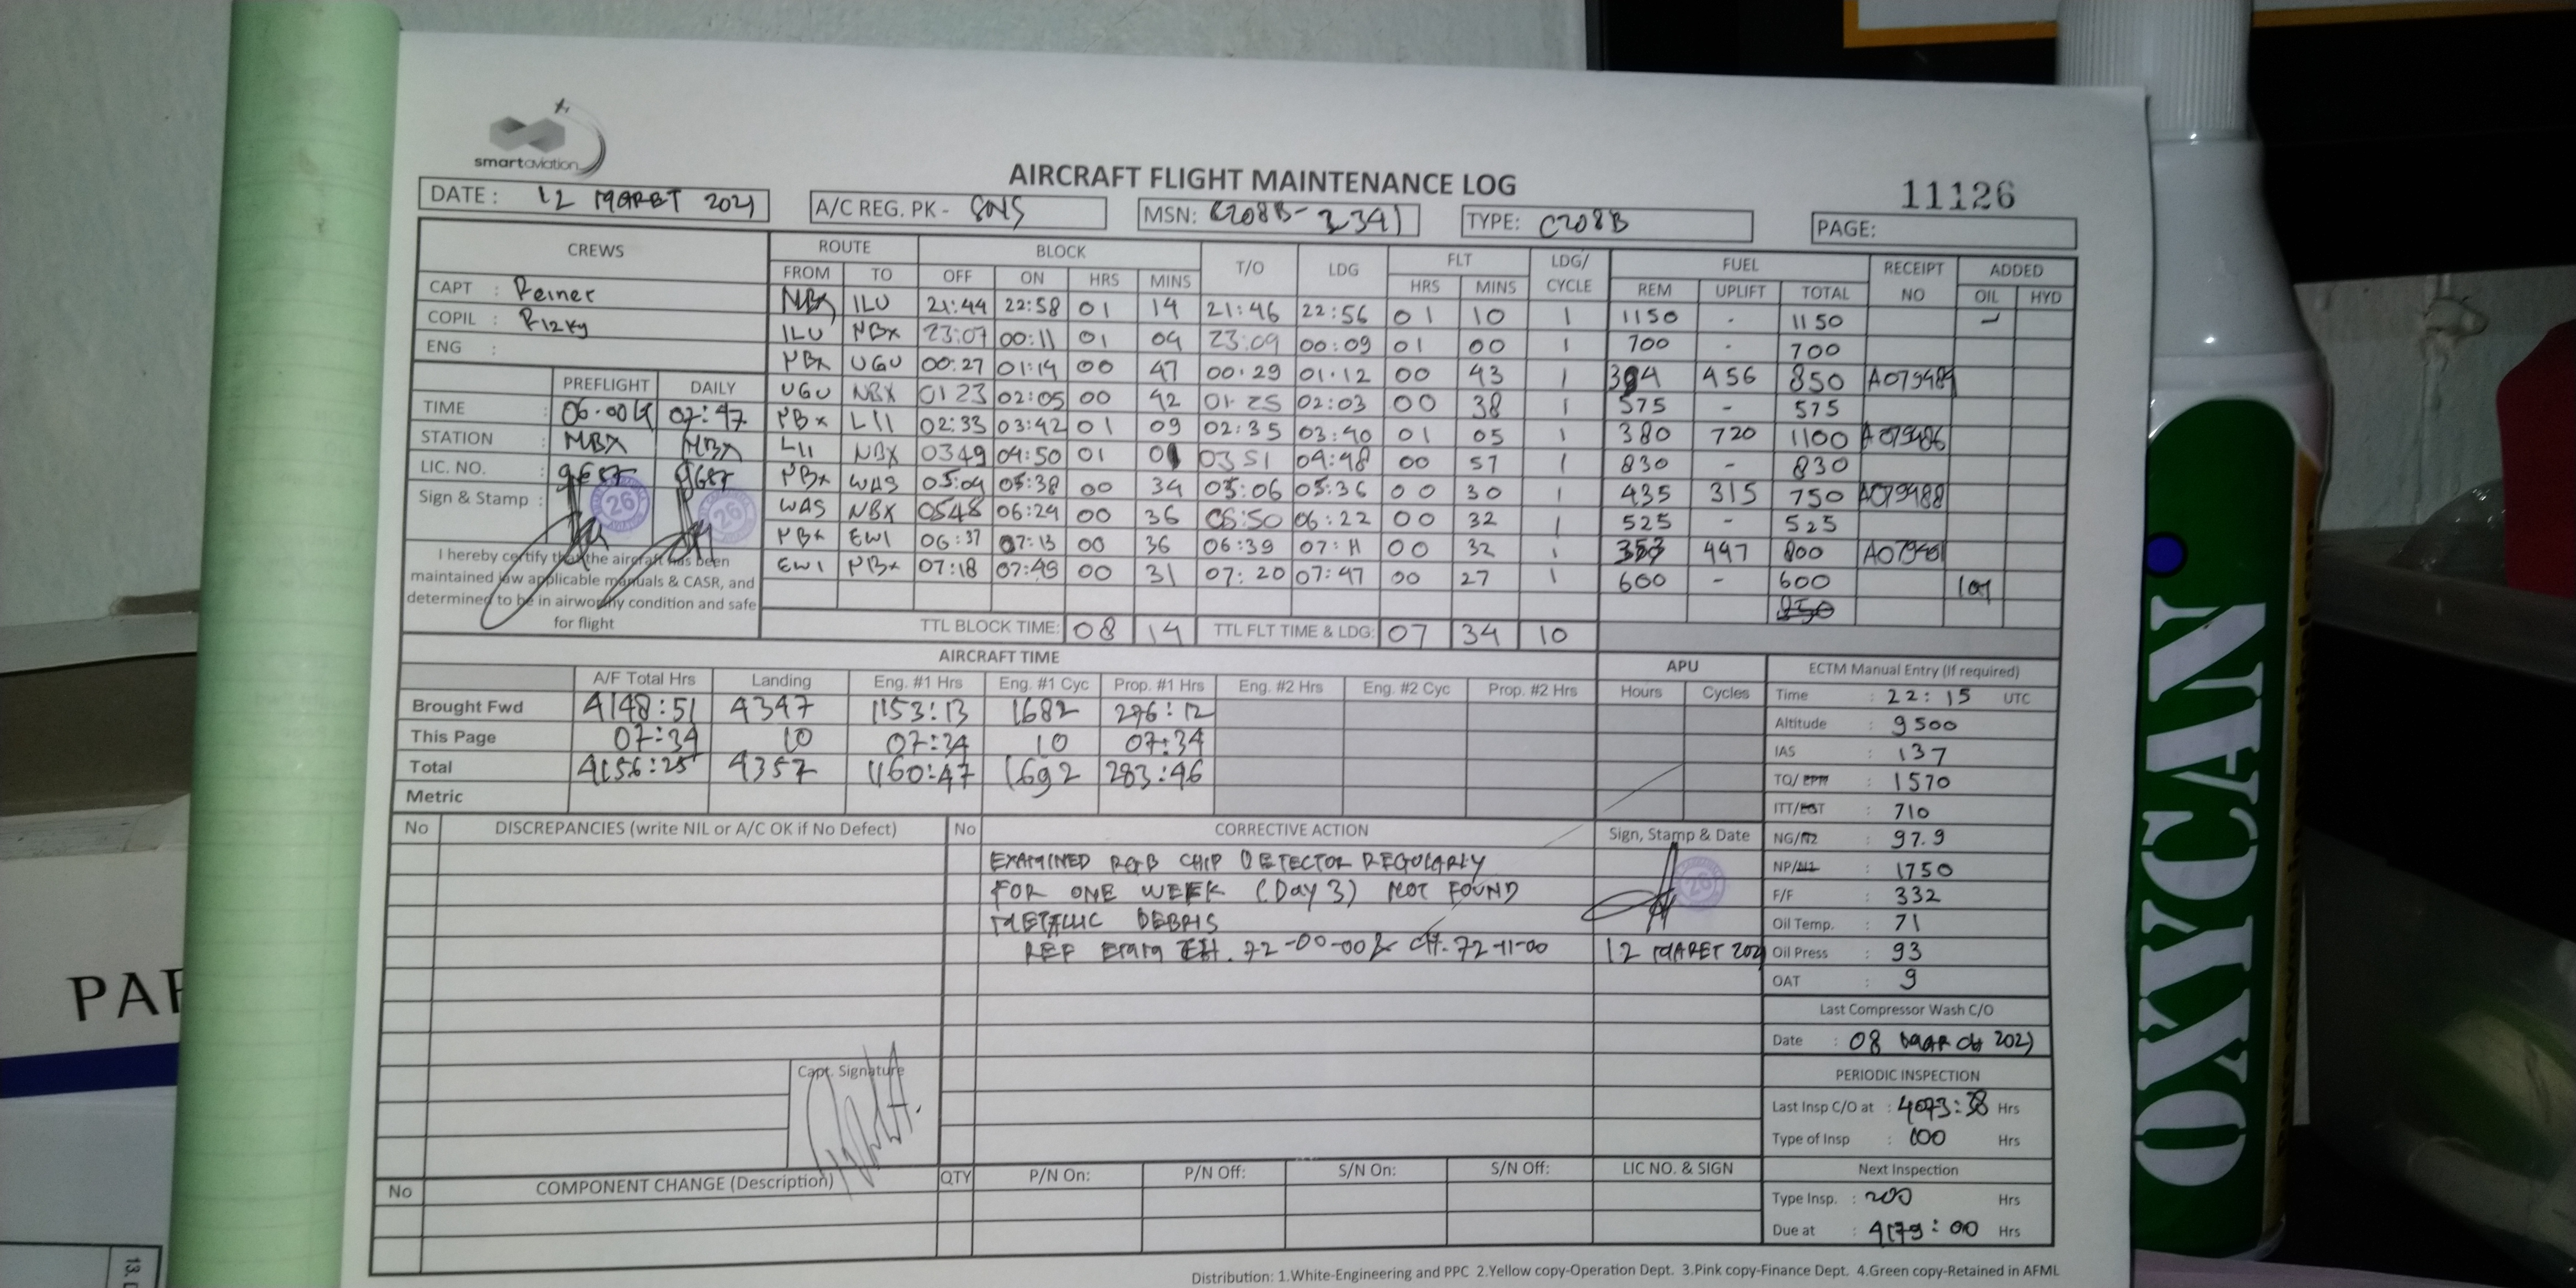 smartaviation
AIRCRAFT FLIGHT MAINTENANCE LOG
11126
DATE : 12 MARET 2021
A/C REG. PK - SNS
MSN: C208B-2341
TYPE: C208B
PAGE:
CREWS ROUTE BLOCK T/O LDG FLT LDG/ CYCLE FUEL RECEIPT NO ADDED
FROM TO OFF ON HRS MINS HRS MINS REM UPLIFT TOTAL OIL HYD
CAPT : Reiner
COPIL : Rizky
ENG :
NBX ILU 21:44 22:58 01 14 21:46 22:56 01 10 1 1150 - 1150 -
ILU NBX 23:07 00:11 01 04 23:09 00:09 01 00 1 700 - 700
NBX UGU 00:27 01:14 00 47 00:29 01:12 00 43 1 394 456 850 A079484
UGU NBX 01 23 02:05 00 42 01 25 02:03 00 38 1 575 - 575
NBX LII 02:33 03:42 01 09 02:35 03:40 01 05 1 380 720 1100 A079486
LII NBX 0349 04:50 01 01 03 51 04:48 00 57 1 830 - 830
NBX WAS 05:04 05:38 00 34 05:06 05:36 00 30 1 435 315 750 A079488
WAS NBX 0548 06:24 00 36 05:50 06:22 00 32 1 525 - 525
NBX EWI 06:37 07:13 00 36 06:39 07:11 00 32 1 353 447 800
EWI NBX 07:18 07:49 00 31 07:20 07:47 00 27 1 600 - 600
PREFLIGHT DAILY
TIME : 06.00 07:47
STATION : NBX NBX
LIC. NO. :
Sign & Stamp :
26 26
I hereby certify that the aircraft has been
maintained iaw applicable manuals & CASR, and
determined to be in airworthy condition and safe
for flight
TTL BLOCK TIME: 08 14 TTL FLT TIME & LDG: 07 34 10
AIRCRAFT TIME
A/F Total Hrs Landing Eng. #1 Hrs Eng. #1 Cyc Prop. #1 Hrs Eng. #2 Hrs Eng. #2 Cyc Prop. #2 Hrs
Brought Fwd 4148:51 4347 1153:13 1682 276:12
This Page 07:34 10 07:34 10 07:34
Total 4156:25 4357 1160:47 1692 283:46
Metric
APU
Hours Cycles
ECTM Manual Entry (If required)
Time : 22:15 UTC
Altitude : 9500
IAS : 137
TQ/EPR : 1570
ITT/EGT : 710
NG/N2 : 97.9
NP/N1 : 1750
F/F : 332
Oil Temp. : 71
Oil Press : 93
OAT : 9
Last Compressor Wash C/O
Date : 08 March 2021
PERIODIC INSPECTION
Last Insp C/O at : 4073:38 Hrs
Type of Insp : 100 Hrs
Next Inspection
Type Insp. : 200 Hrs
Due at : 4179:00 Hrs
No DISCREPANCIES (write NIL or A/C OK if No Defect) No CORRECTIVE ACTION Sign, Stamp & Date
EXAMINED RGB CHIP DETECTOR REGULARLY
FOR ONE WEEK (Day 3) NOT FOUND
METALLIC DEBRIS
REF EMM CH. 72-00-00 & CH. 72-11-00
26
12 MARET 202
Capt. Signature
No COMPONENT CHANGE (Description) QTY P/N On: P/N Off: S/N On: S/N Off: LIC NO. & SIGN
Distribution: 1.White-Engineering and PPC 2.Yellow copy-Operation Dept. 3.Pink copy-Finance Dept. 4.Green copy-Retained in AFML
OXYCAN
PAR
13.